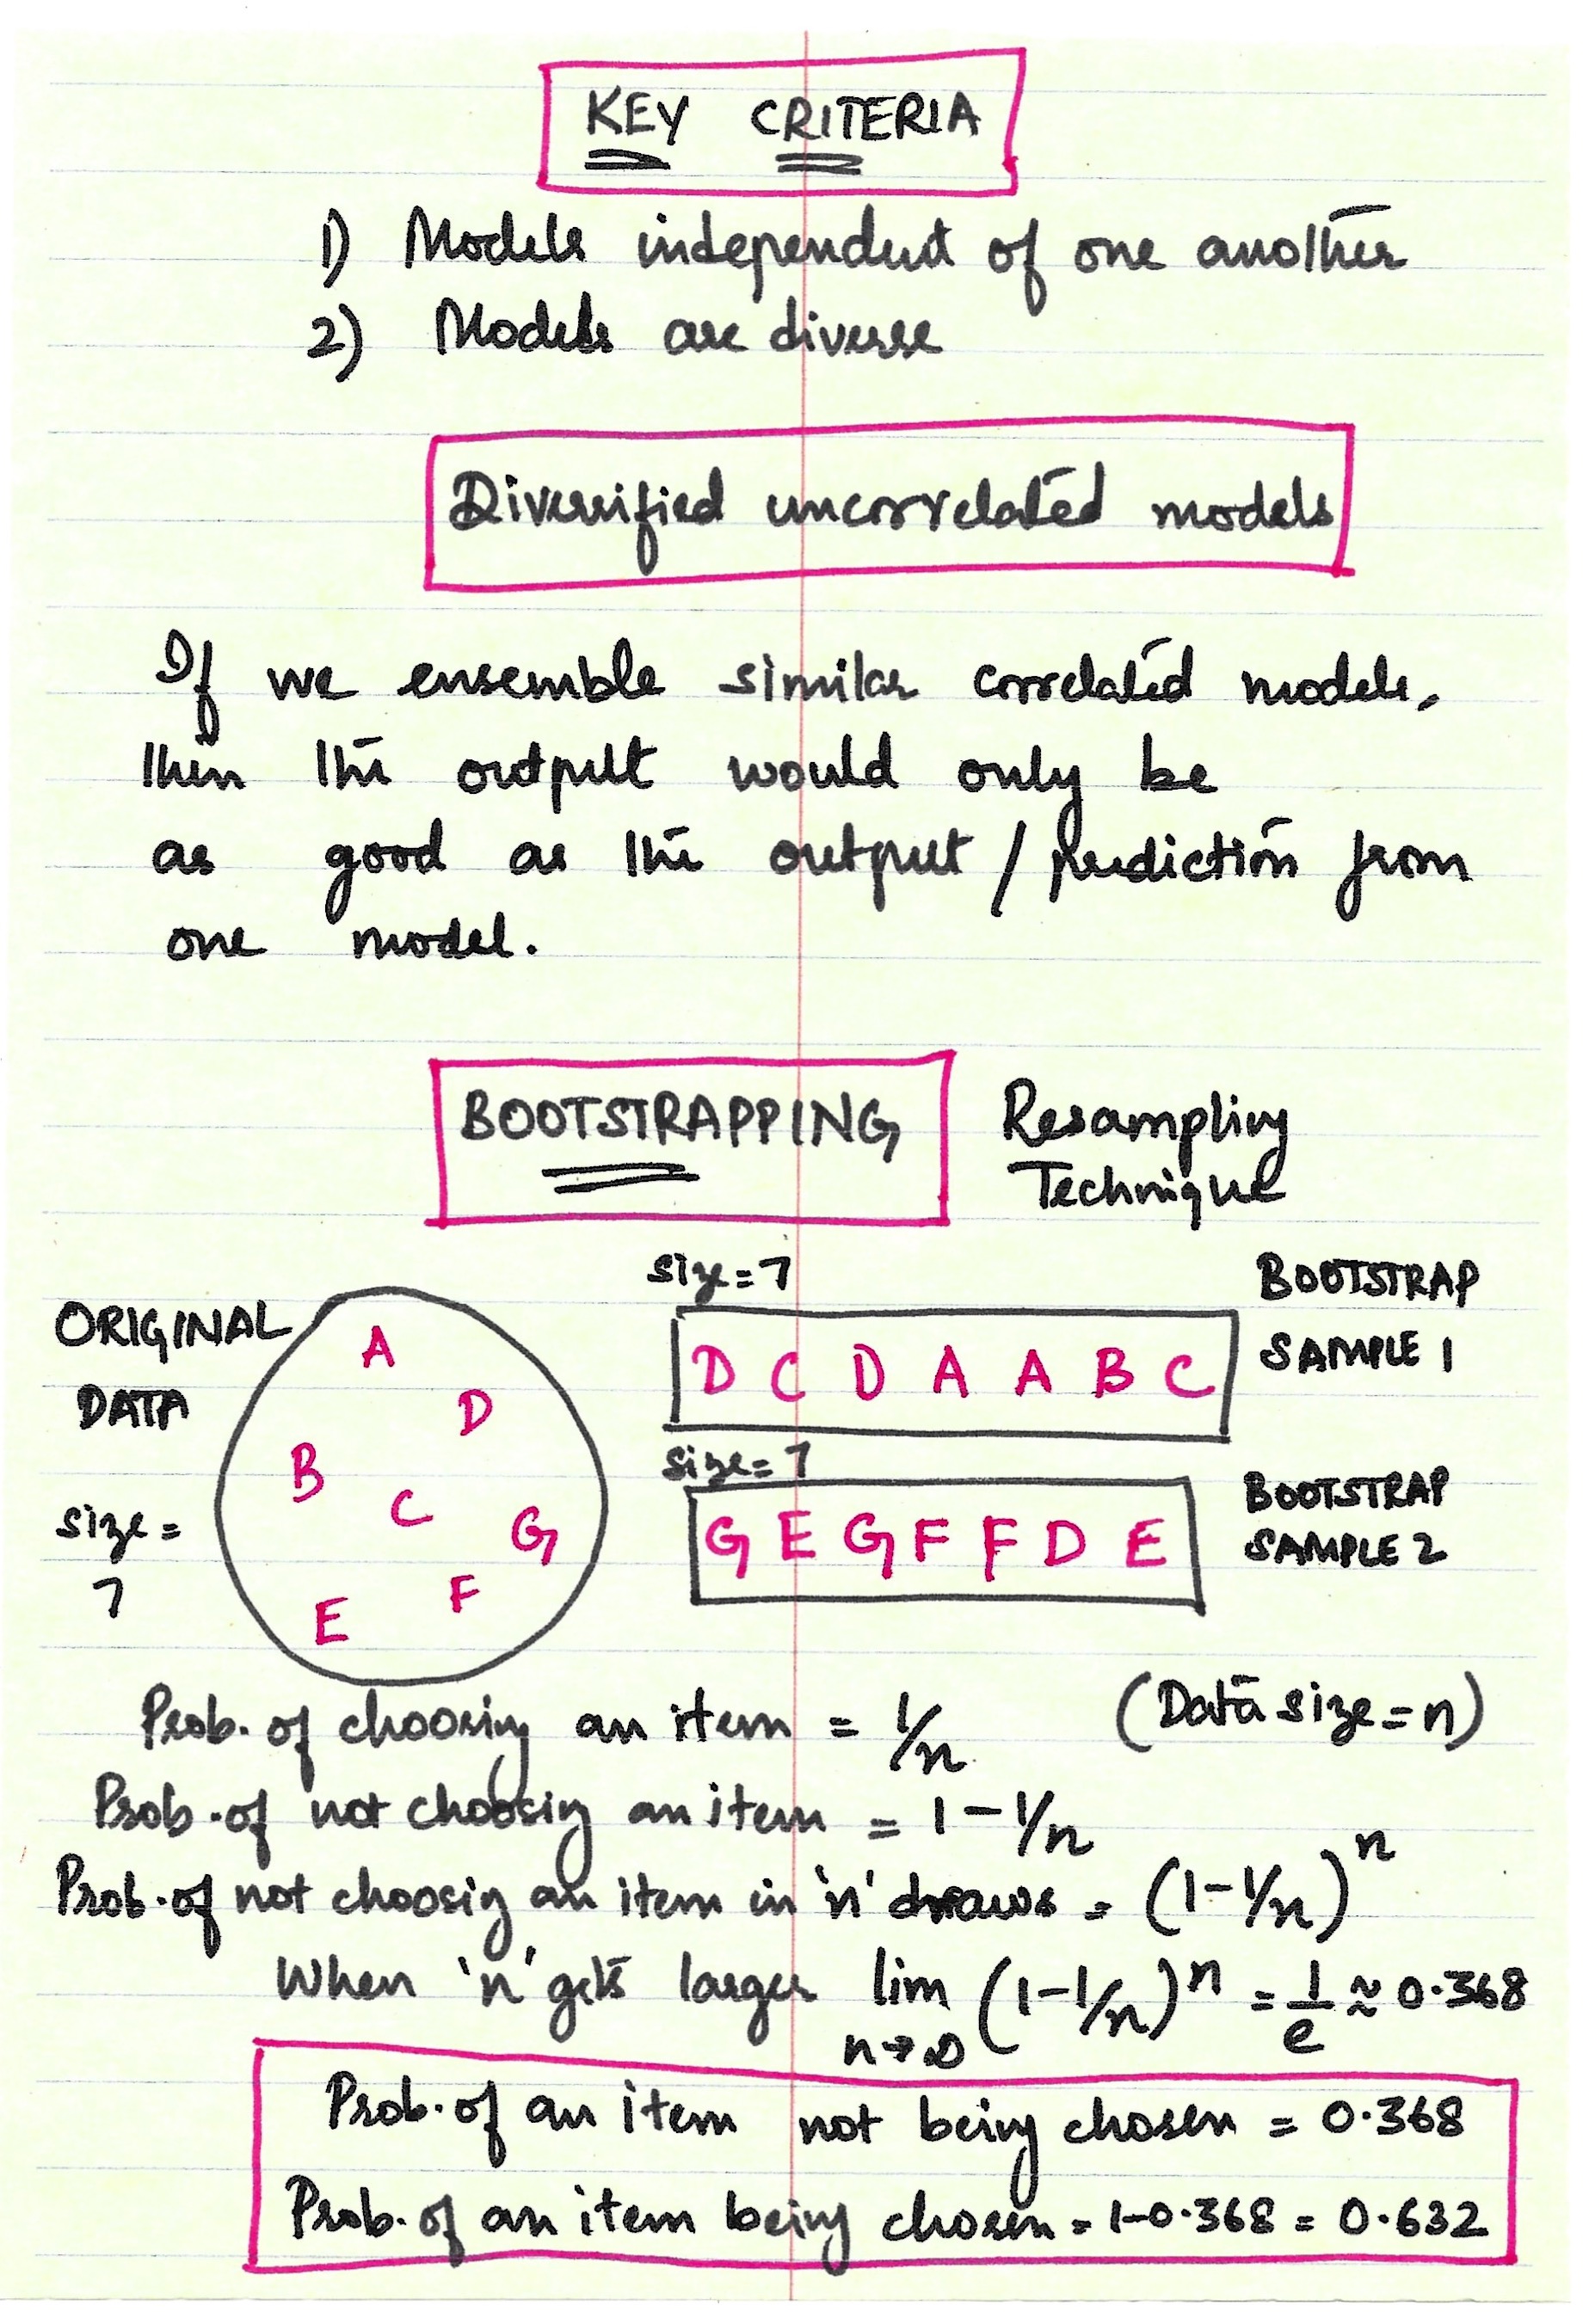 KEY CRITERIA
1) Models independent of one another
2) Models are diverse
Diversified uncorrelated models
If we ensemble similar correlated models,
then the output would only be
as good as the output / prediction from
one model.
BOOTSTRAPPING
Resampling
Technique
ORIGINAL
DATA
size =
7
A
D
B
C
G
F
E
size = 7
D C D A A B C
BOOTSTRAP
SAMPLE 1
size = 7
G E G F F D E
BOOTSTRAP
SAMPLE 2
Prob. of choosing an item = 1/n (Data size = n)
Prob. of not choosing an item = 1 - 1/n
Prob. of not choosig an item in 'n' draws = (1 - 1/n)^n
When 'n' gets larger lim n→∞ (1 - 1/n)^n = 1/e ≈ 0.368
Prob. of an item not being chosen = 0.368
Prob. of an item being chosen = 1-0.368 = 0.632